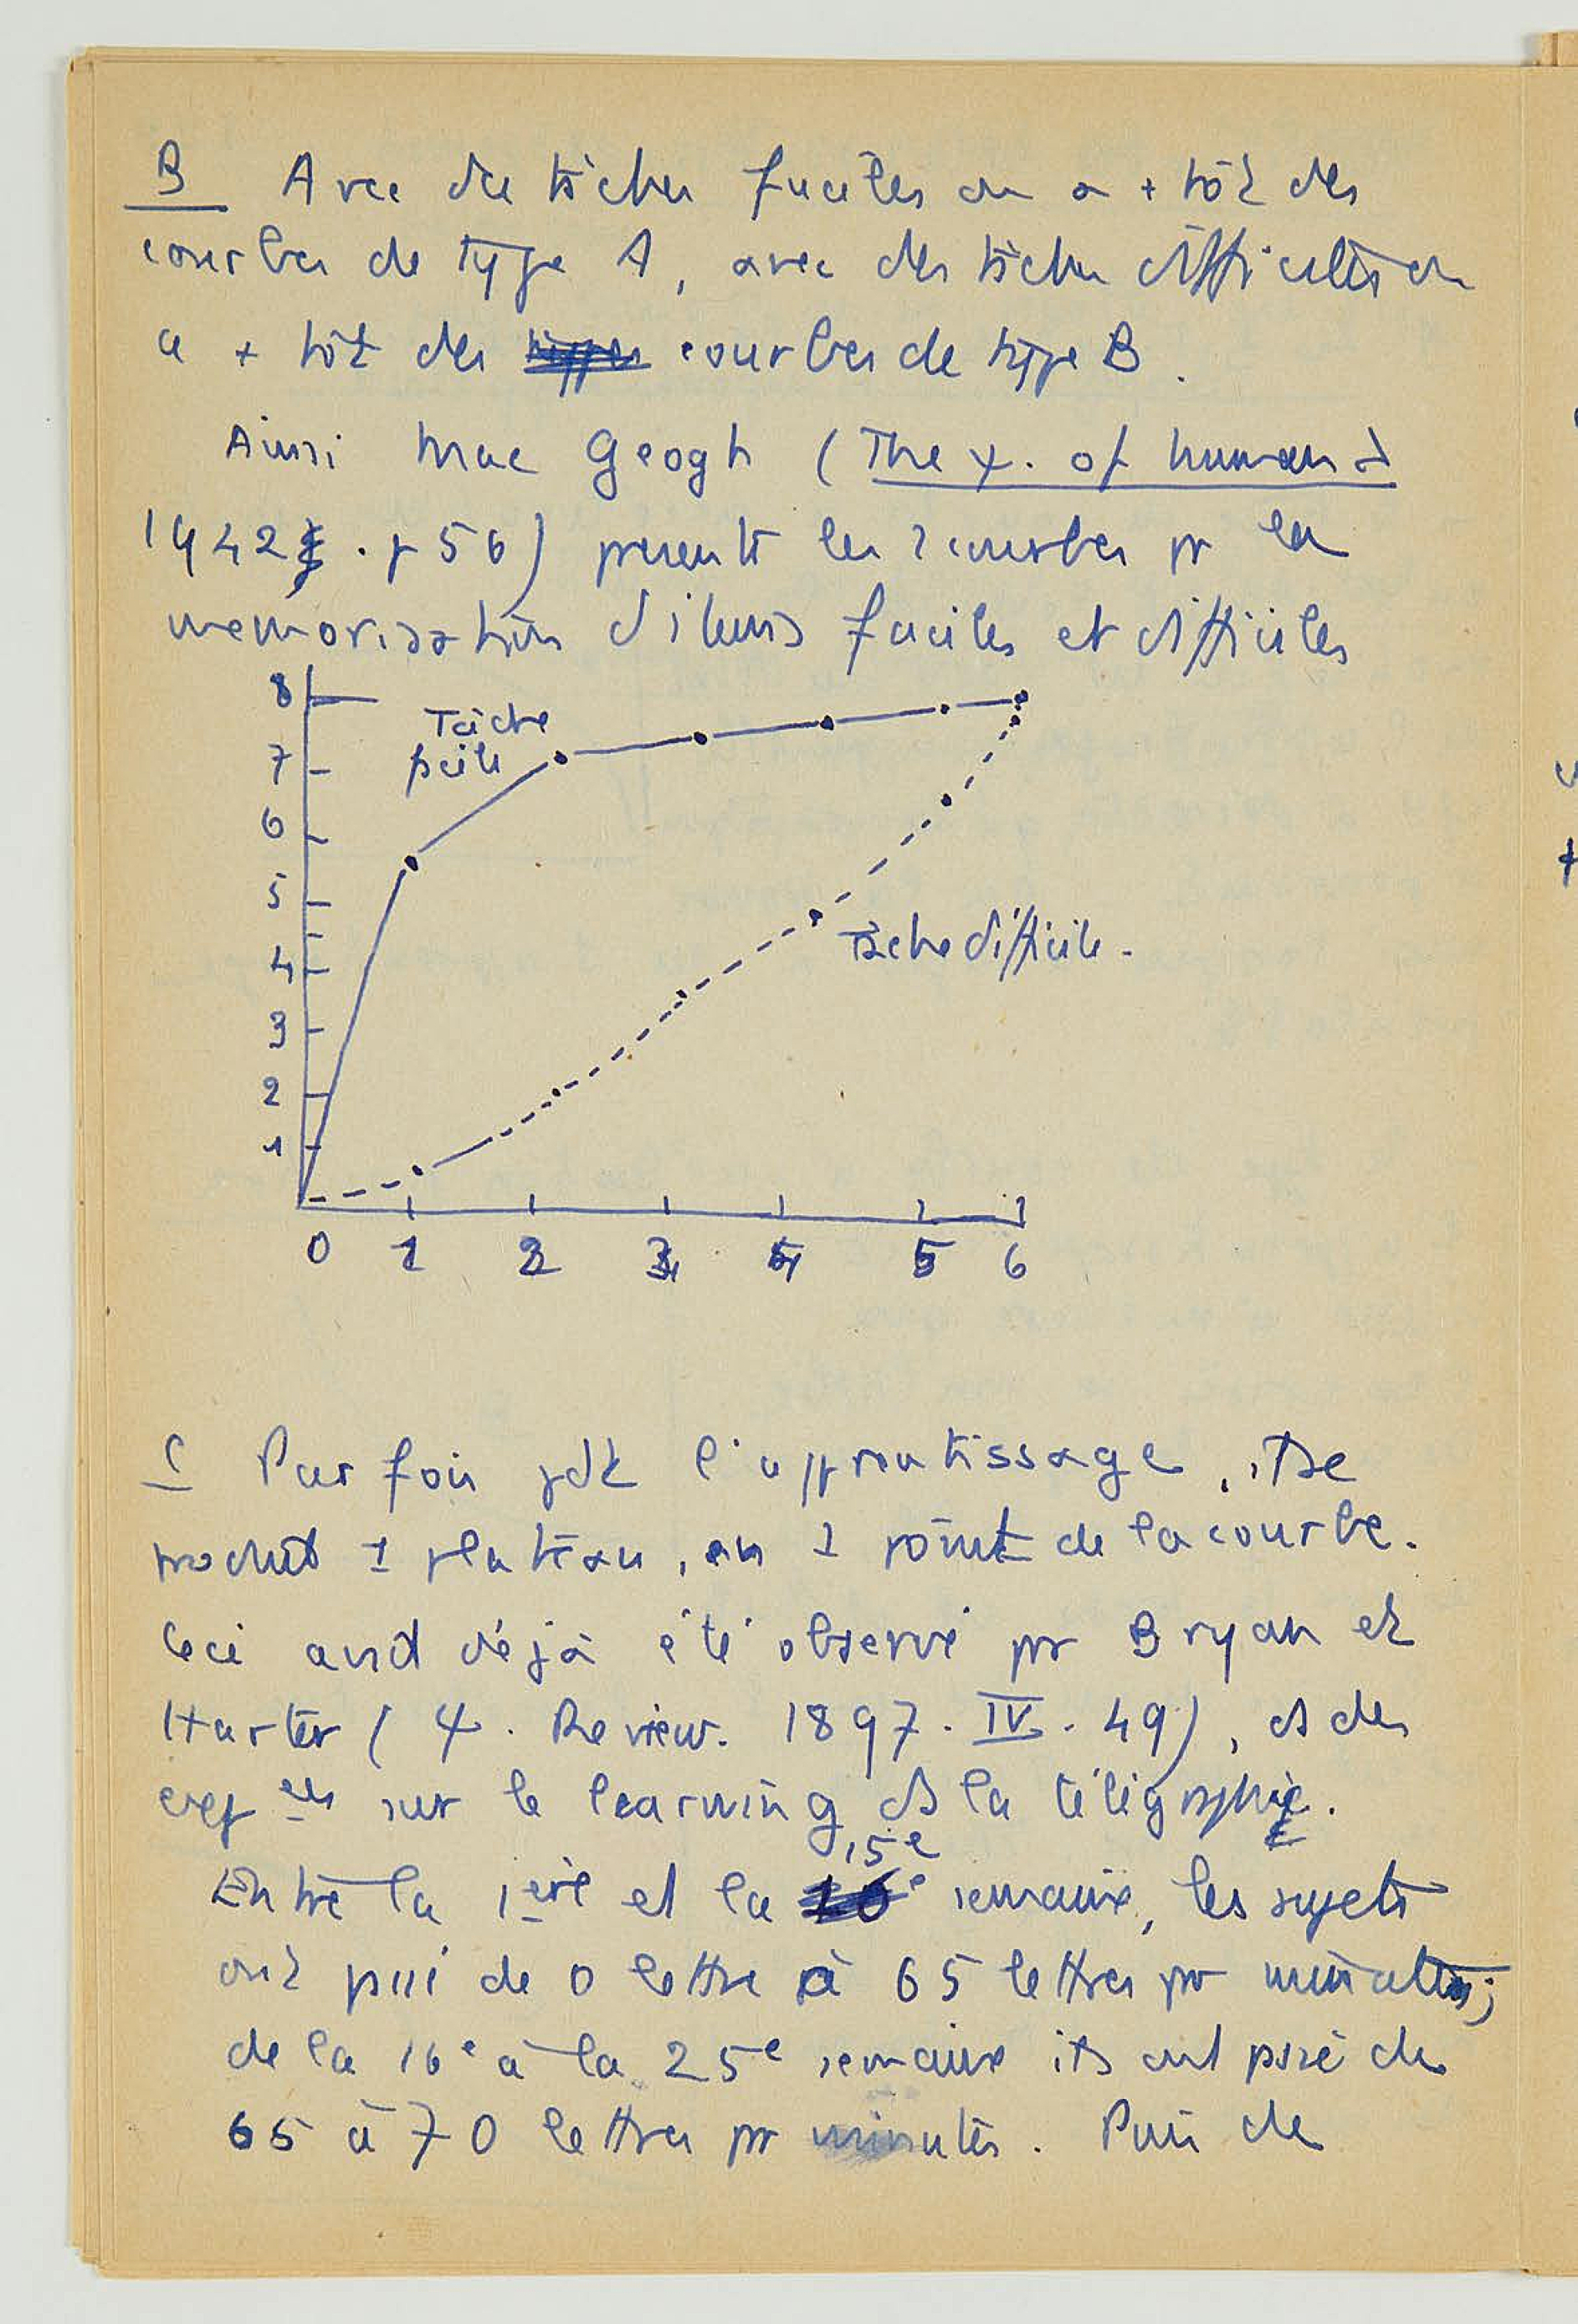 B Avec des tâches faciles on a + tôt des
courbes de type A, avec des tâches difficiles on
a + tôt des courbes de type B.
Ainsi Mac Geogh (The ψ. of human
1942 . p 56) présente les 2 courbes pr la
mémorisation d'items faciles et difficiles
8
Tâche
facile
7
6
5
Tâche difficile.
4
3
2
1
0 1 2 3 4 5 6
C Parfois pdt l'apprentissage, il se
produit 1 plateau, en 1 point de la courbe.
Ceci avait déjà été observé pr Bryan et
Harter (ψ. Review. 1897. IV. 49), ds des
expces sur le learning ds la télégraphie.
Entre la 1ère et la 15e semaine, les sujets
ont passé de 0 lettre à 65 lettres pr minutes;
de la 16e à la 25e semaine ils ont passé de
65 à 70 lettres pr minutes. Puis de